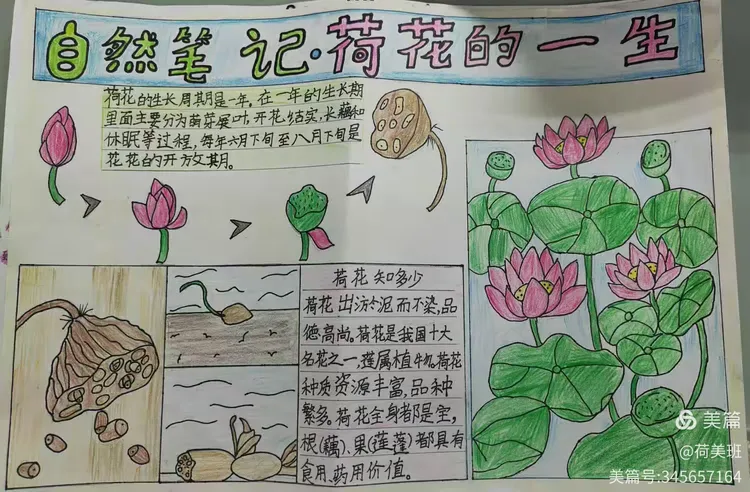 自然笔记·荷花的一生
荷花的生长周其月是一年。在一年的生长期
里面主要分为萌芽展叶、开花结实、长藕和
休眠等过程，每年六月下旬至八月下旬是
花花的开方攵其月。
荷花知多少
荷花出淤泥而不染,品
德高尚。荷花是我国十大
名花之一,莲属植物。荷花
种质资源丰富,品种
繁多。荷花全身都是宝,
根(藕)、果(莲蓬)都具有
食用、药用价值。
美篇
@荷美班
美篇号:345657164